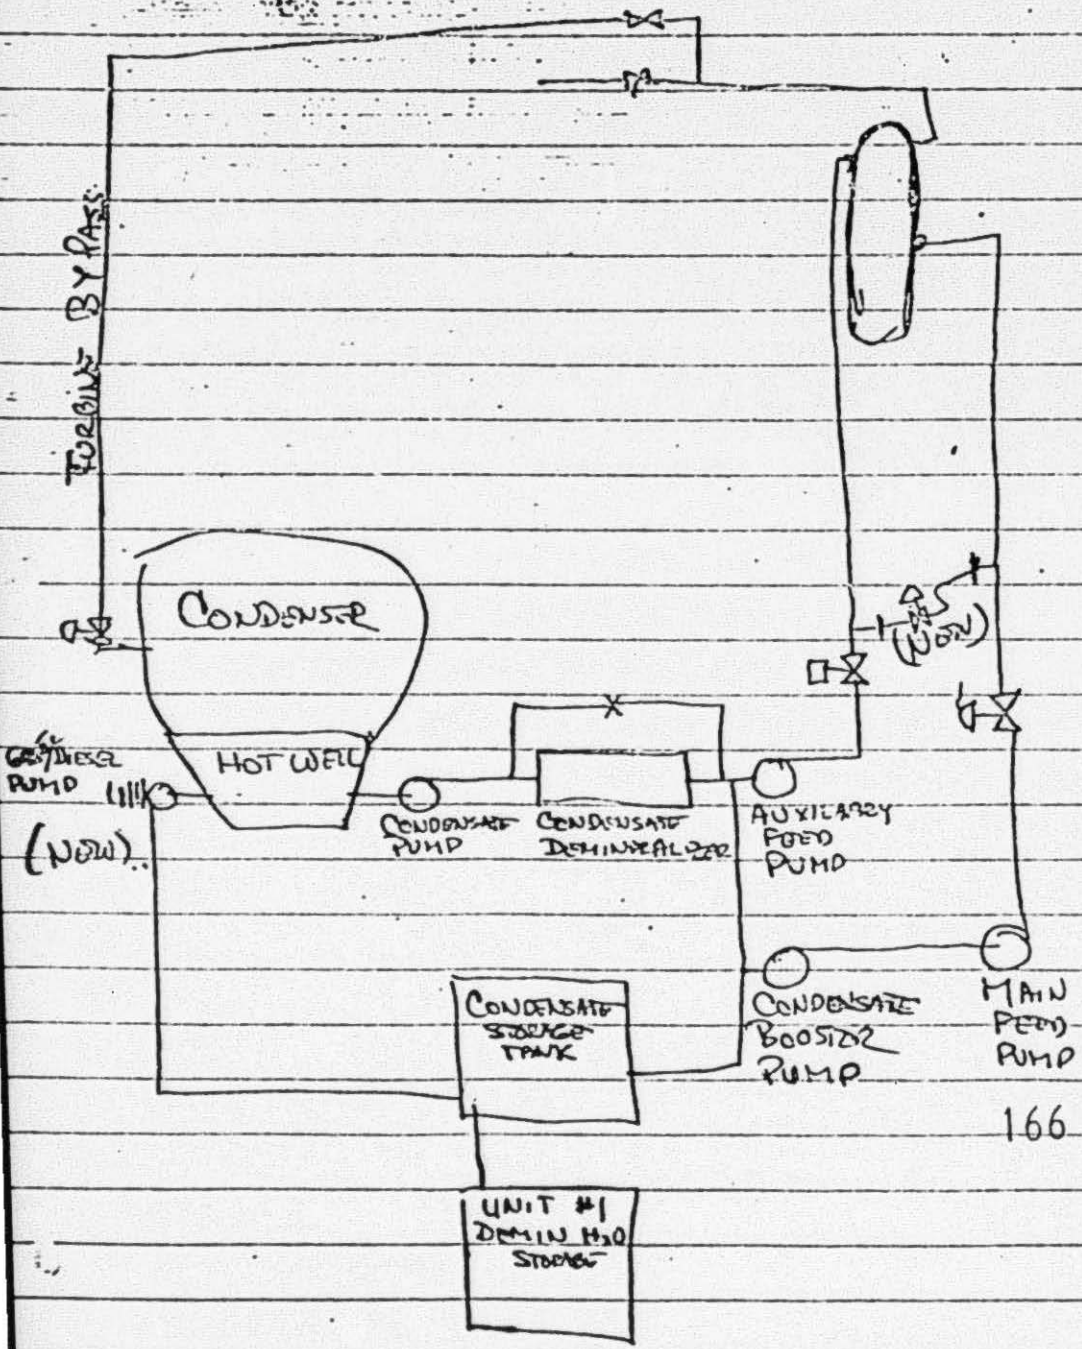 TURBINE BYPASS
CONDENSER
(NEW)
HOT WELL
DIESEL
PUMP
(NEW)
CONDENSATE
PUMP
CONDENSATE
DEMINERALIZER
AUXILARRY
FEED
PUMP
CONDENSATE
STORAGE
TANK
CONDENSATE
BOOSTER
PUMP
MAIN
FEED
PUMP
166
UNIT #1
DEMIN H2O
STORAGE